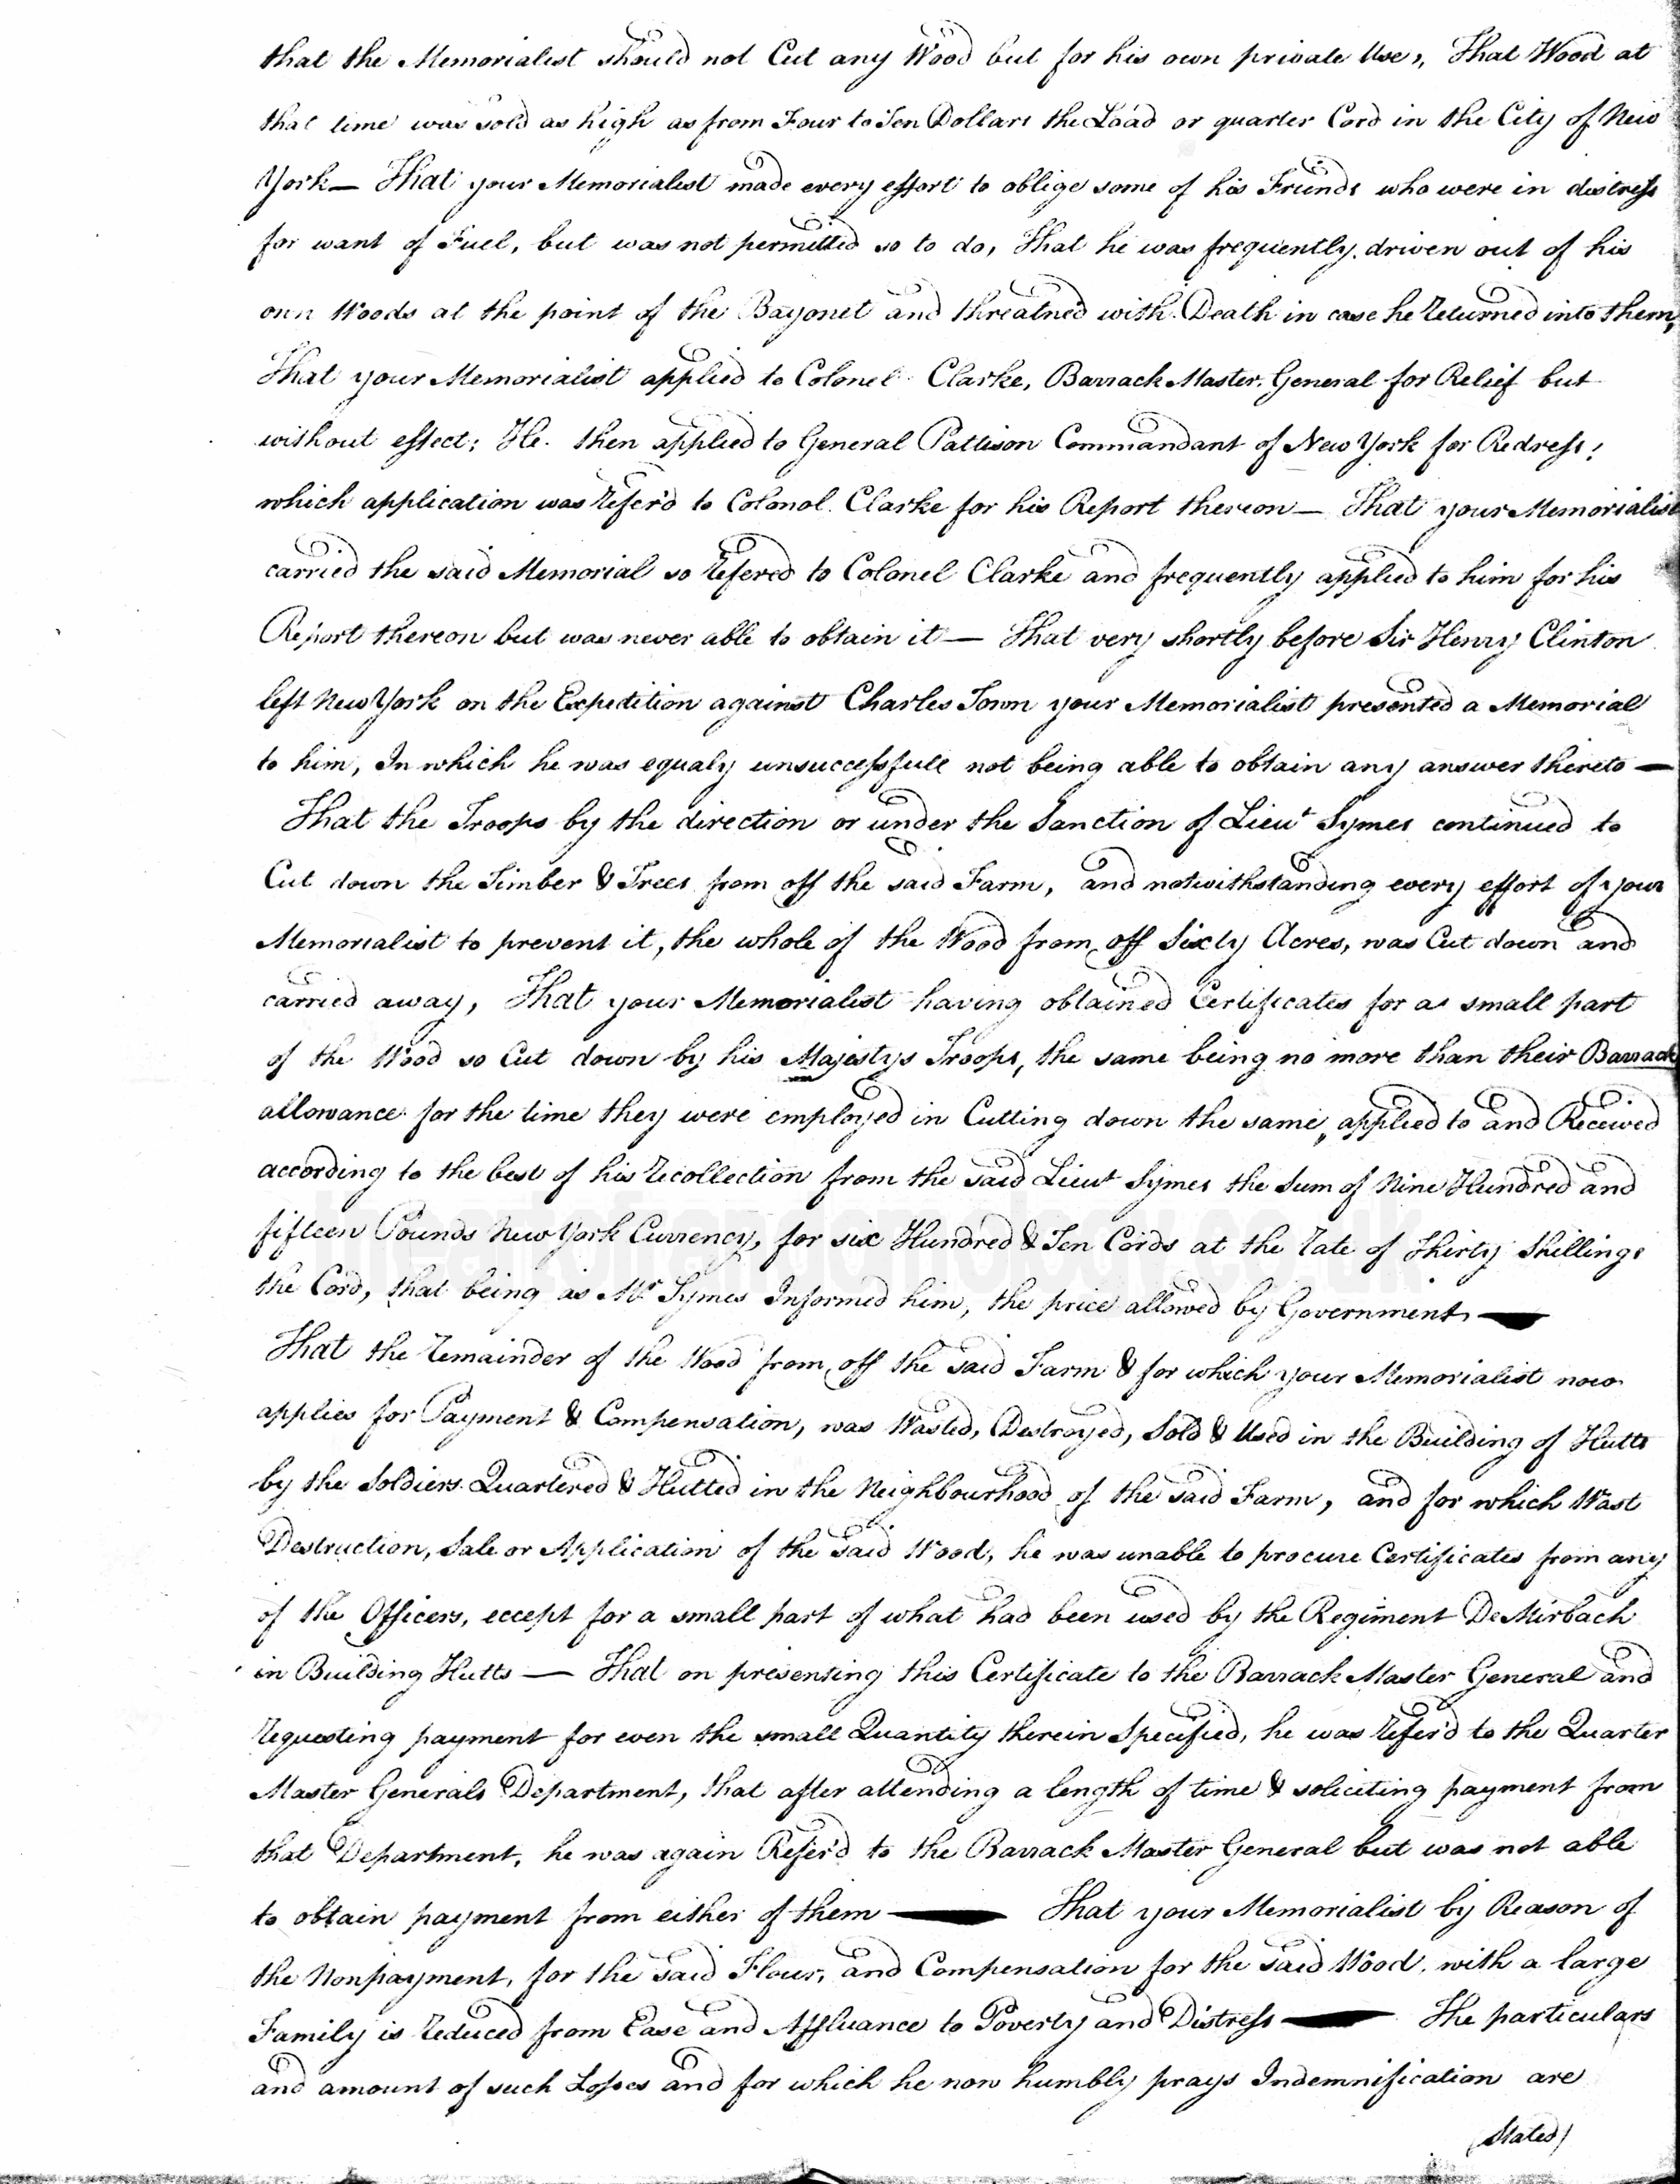 that the Memorialist should not Cut any Wood but for his own private Use, That Wood at
that time was sold as high as from Four to Ten Dollars the Load or quarter Cord in the City of New
York — That your Memorialist made every effort to oblige some of his Friends who were in distress
for want of Fuel, but was not permitted so to do, That he was frequently driven out of his
own Woods at the point of the Bayonet and threatned with Death in case he Returned into them,
That your Memorialist applied to Colonel Clarke, Barrack Master General for Relief but
without effect; He then applied to General Pattison Commandant of New York for Redress;
which application was Refer'd to Colonol Clarke for his Report thereon — That your Memorialist
carried the said Memorial so Refered to Colonel Clarke and frequently applied to him for his
Report thereon but was never able to obtain it — That very shortly before Sir Henry Clinton
left New York on the Expedition against Charles Town your Memorialist presented a Memorial
to him, In which he was equaly unsuccessfull not being able to obtain any answer thereto —
That the Troops by the direction or under the Sanction of Lieut Symes continued to
Cut down the Timber & Trees from off the said Farm, and notwithstanding every effort of your
Memorialist to prevent it, the whole of the Wood from off Sixty Acres, was Cut down and
carried away, That your Memorialist having obtained Certificates for a small part
of the Wood so Cut down by his Majestys Troops, the same being no more than their Barrack
allowance for the time they were employed in Cutting down the same, applied to and Received
according to the best of his Recollection from the said Lieut Symes the Sum of Nine Hundred and
fifteen Pounds New York Currency, for six Hundred & Ten Cords at the Rate of Thirty Shillings
the Cord, that being as Mr Symes Informed him, the price allowed by Government —
That the Remainder of the Wood from off the said Farm & for which your Memorialist now
applies for Payment & Compensation, was Wasted, Destroyed, Sold & Used in the Building of Hutts
by the Soldiers Quartered & Hutted in the Neighbourhood of the said Farm, and for which Wast
Destruction, Sale or Application of the said Wood, he was unable to procure Certificates from any
of the Officers, eccept for a small part of what had been used by the Regiment De Mirbach
in Building Hutts — That on presenting this Certificate to the Barrack Master General and
Requesting payment for even the small Quantity therein Specified, he was Refer'd to the Quarter
Master Generals Department, that after attending a length of time & soliciting payment from
that Department, he was again Refer'd to the Barrack Master General but was not able
to obtain payment from either of them — That your Memorialist by Reason of
the Nonpayment, for the said Flour, and Compensation for the said Wood, with a large
Family is Reduced from Ease and Affluance to Poverty and Distress — The particulars
and amount of such Losses and for which he now humbly prays Indemnification are
(Stated)